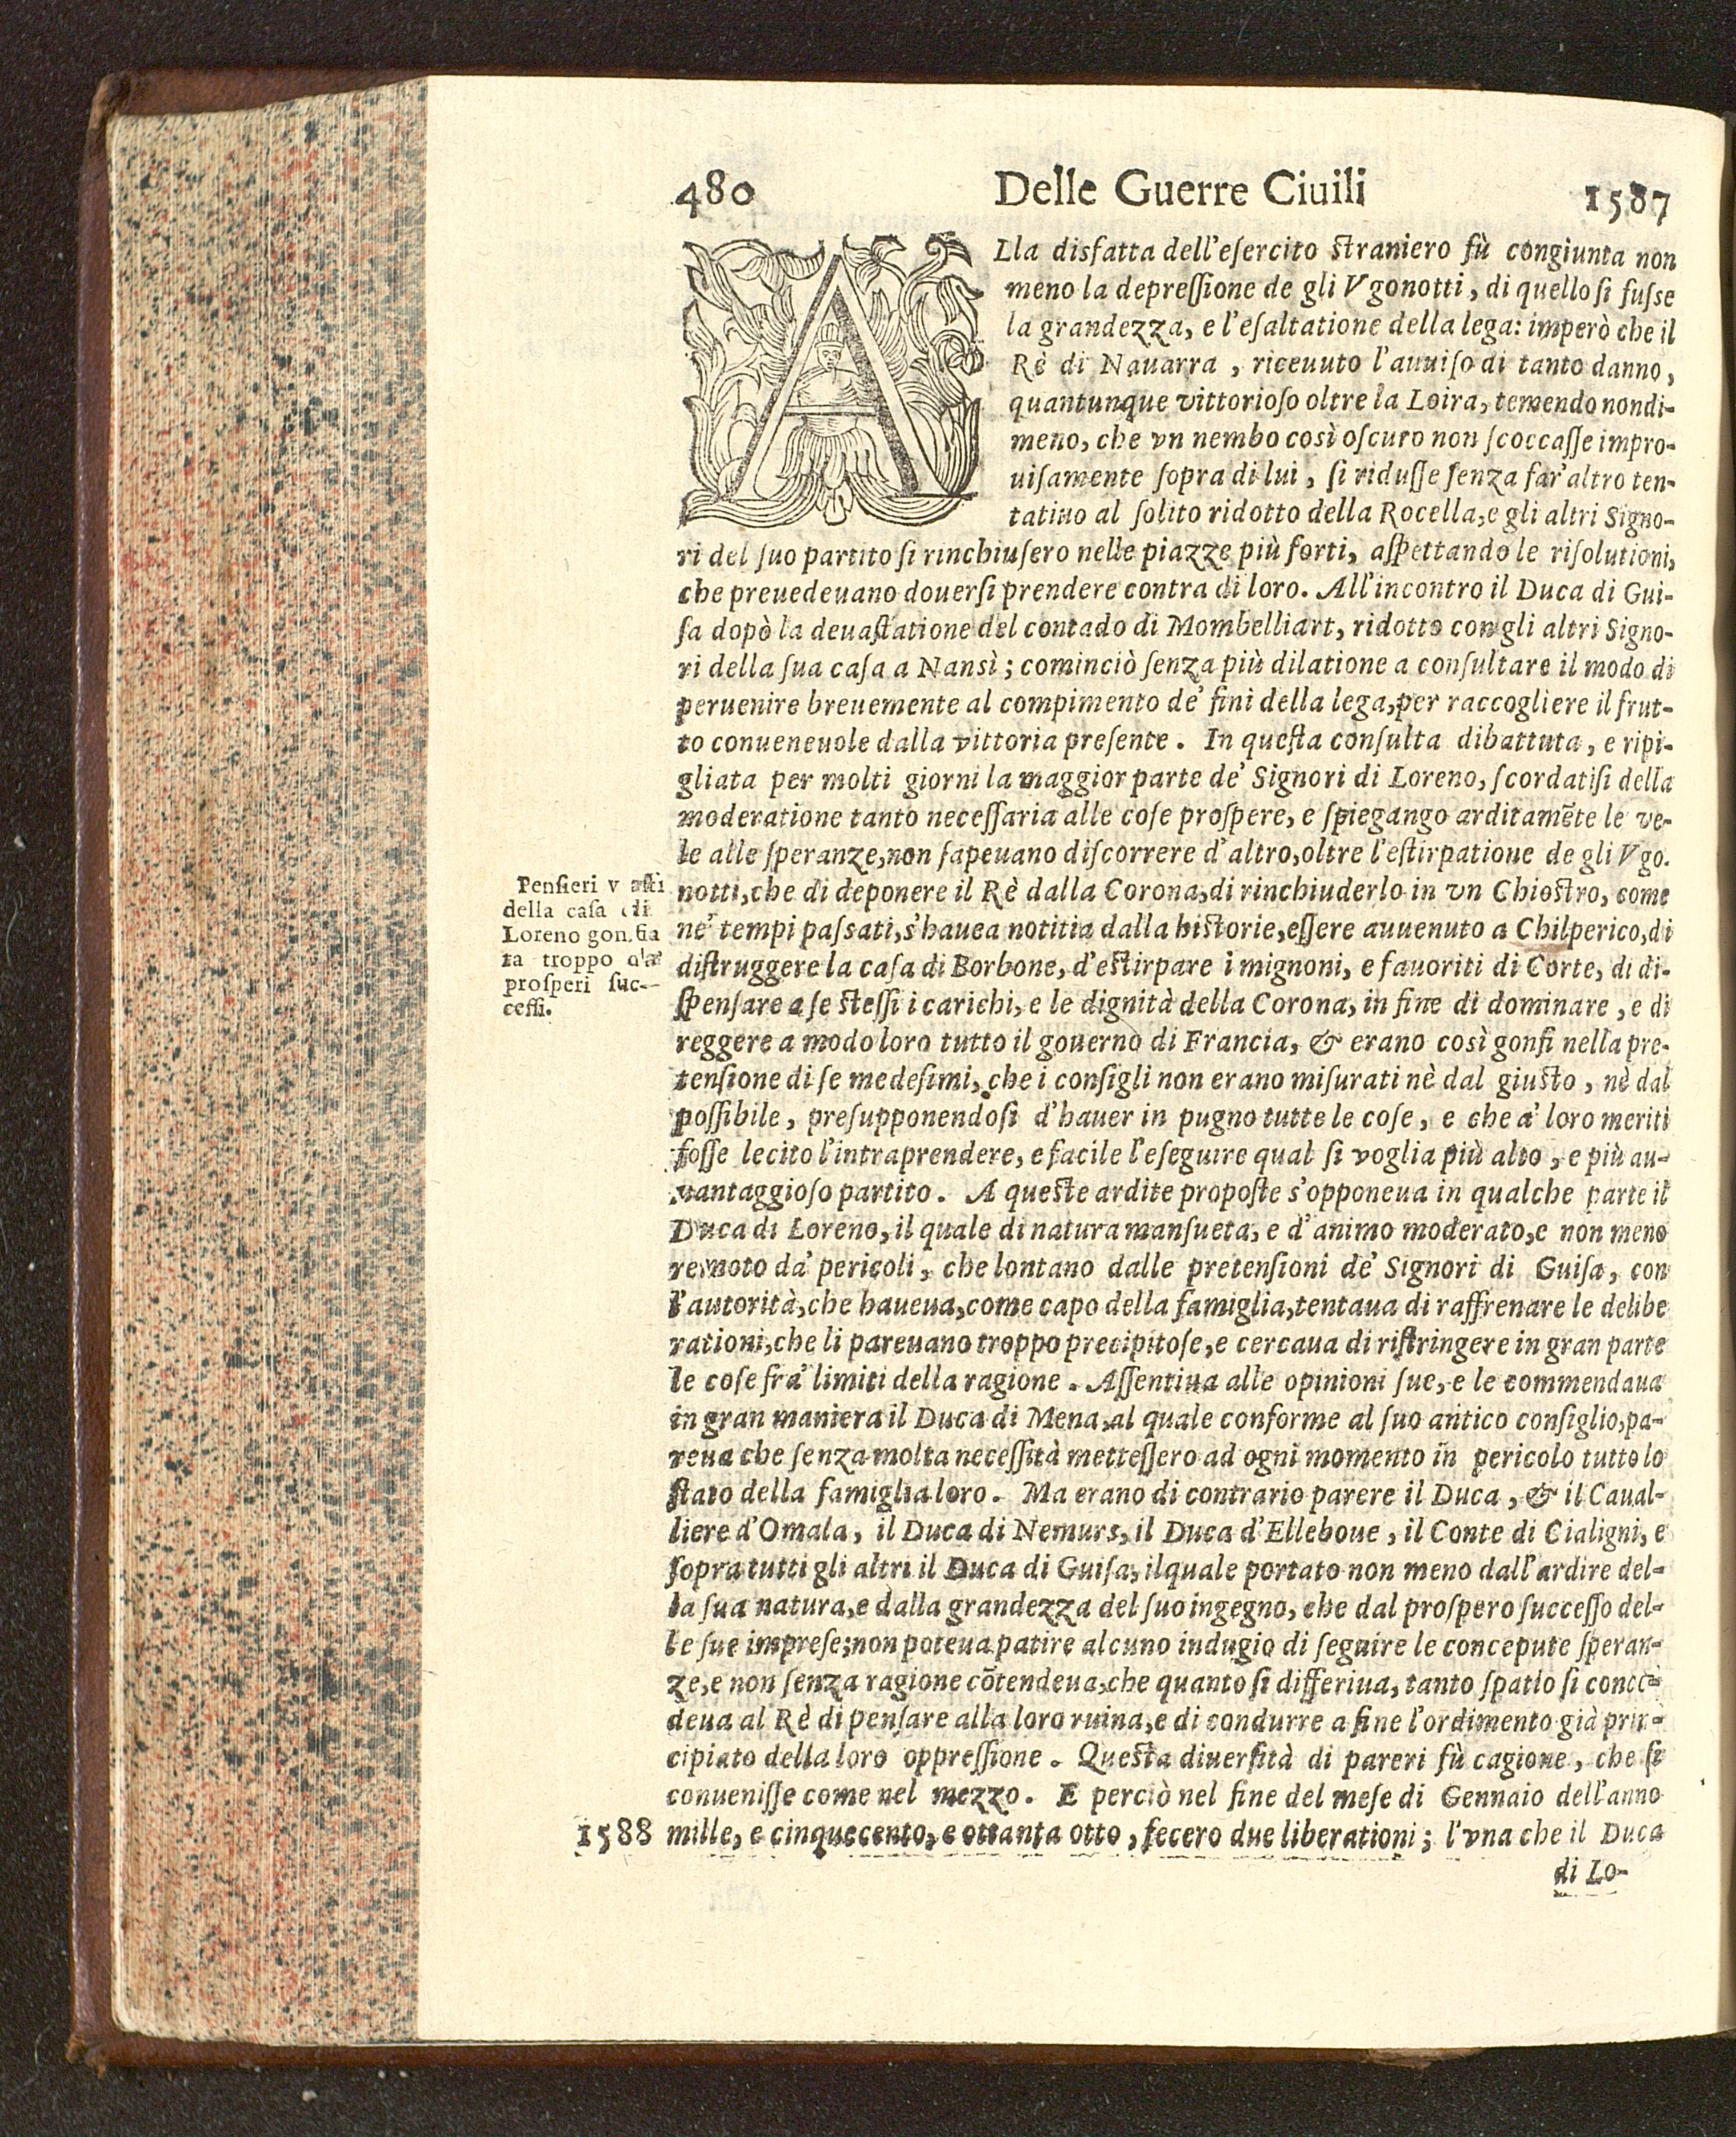 480 Delle Guerre Ciuili 1587
ALla disfatta dell'eſercito ſtraniero fù congiunta non
meno la depreſſione de gli Vgonotti, di quello ſi fuſse
la grandezza, e l'eſaltatione della lega: imperò che il
Rè di Nauarra, riceuuto l'auuiſo di tanto danno,
quantunque vittorioſo oltre la Loira, temendo nondi-
meno, che vn nembo così oſcuro non ſcoccaſſe impro-
uiſamente ſopra di lui, ſi riduſſe ſenza far'altro ten-
tatiuo al ſolito ridotto della Rocella, e gli altri Signo-
ri del ſuo partito ſi rinchiuſero nelle piazze più forti, aſpettando le riſolutioni,
che preuedeuano douerſi prendere contra di loro. All'incontro il Duca di Gui-
ſa dopò la deuaſtatione del contado di Mombelliart, ridotto con gli altri Signo-
ri della ſua caſa a Nansì; cominciò ſenza più dilatione a conſultare il modo di
peruenire breuemente al compimento de' fini della lega, per raccogliere il frut-
to conueneuole dalla vittoria preſente. In queſta conſulta dibattuta, e ripi-
gliata per molti giorni la maggior parte de' Signori di Loreno, ſcordatiſi della
moderatione tanto neceſſaria alle coſe proſpere, e ſpiegango arditamēte le ve-
le alle ſperanze, non ſapeuano diſcorrere d'altro, oltre l'eſtirpatioue de gli Vgo.
notti, che di deponere il Rè dalla Corona, di rinchiuderlo in vn Chioſtro, come
ne' tempi paſsati, s'hauea notitia dalla hiſtorie, eſſere auuenuto a Chilperico, di
diſtruggere la caſa di Borbone, d'eſtirpare i mignoni, e fauoriti di Corte, di di-
ſpenſare a ſe ſteſſi i carichi, e le dignità della Corona, in fine di dominare, e di
reggere a modo loro tutto il gouerno di Francia, & erano così gonfi nella pre-
tenſione di ſe medeſimi, che i conſigli non erano miſurati nè dal giuſto, nè dal
poſſibile, preſupponendoſi d'hauer in pugno tutte le coſe, e che a' loro meriti
foſſe lecito l'intraprendere, e facile l'eſeguire qual ſi voglia più alto, e più au-
uantaggioſo partito. A queſte ardite propoſte s'opponeua in qualche parte il
Duca di Loreno, il quale di natura manſueta, e d'animo moderato, e non meno
remoto da' pericoli, che lontano dalle pretenſioni de' Signori di Guiſa, con
l'autorità, che haueua, come capo della famiglia, tentaua di raffrenare le delibe
rationi, che li pareuano troppo precipitoſe, e cercaua di riſtringere in gran parte
le coſe fra' limiti della ragione. Aſſentiua alle opinioni ſue, e le commendaua
in gran maniera il Duca di Mena, al quale conforme al ſuo antico conſiglio, pa-
reua che ſenza molta neceſſità metteſſero ad ogni momento in pericolo tutto lo
ſtato della famiglia loro. Ma erano di contrario parere il Duca, & il Caual-
liere d'Omala, il Duca di Nemurs, il Duca d'Elleboue, il Conte di Cialigni, e
ſopra tutti gli altri il Duca di Guiſa, ilquale portato non meno dall'ardire del-
la ſua natura, e dalla grandezza del ſuo ingegno, che dal proſpero ſucceſſo del-
le ſue impreſe; non poteua patire alcuno indugio di ſeguire le concepute ſperan-
ze, e non ſenza ragione cōtendeua, che quanto ſi differiua, tanto ſpatio ſi conce-
deua al Rè di penſare alla loro ruina, e di condurre a fine l'ordimento già prin-
cipiato della loro oppreſſione. Queſta diuerſità di pareri fù cagione, che ſi
conueniſſe come nel mezzo. E perciò nel fine del meſe di Gennaio dell'anno
1588 mille, e cinquecento, e ottanta otto, fecero due liberationi; l'vna che il Duca
di Lo-
Penſieri vaſti
della caſa di
Loreno gonfia
ta troppo da'
proſperi ſuc-
ceſſi.